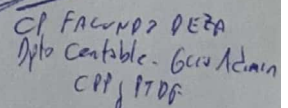 CP FACUNDO DEZA
Dpto Contable. Gcia Admin
CPP y PTDF